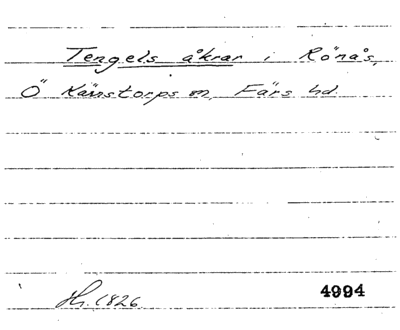 Tengels åkrar i Rönås,
Ö Kärrstorps sn, Färs hd.
Hs. 1826. 4994